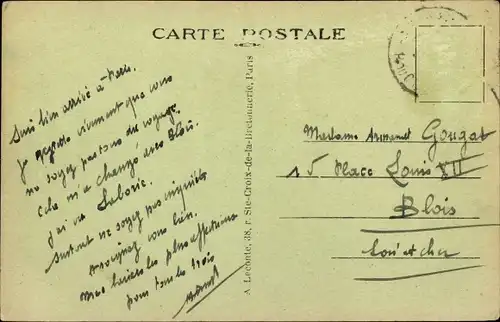 CARTE POSTALE
Suis bien arrivé à
Je regrette vivement que vous
ne soyez pas du voyage
Cela m'a changé avec Blois.
J'ai vu
surtout ne soyez pas inquiète
soignez vous bien.
Mes baisers les plus affectueux
pour tous les trois
A. Leconte, 38, r. Ste-Croix-de-la-Bretonnerie, Paris
Madame Armand Gougat
15 Place Louis XII
Blois
Loir et cher